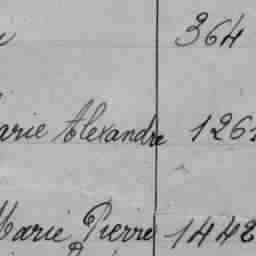 364
arie Alexandre 126
Marie Pierre 1442